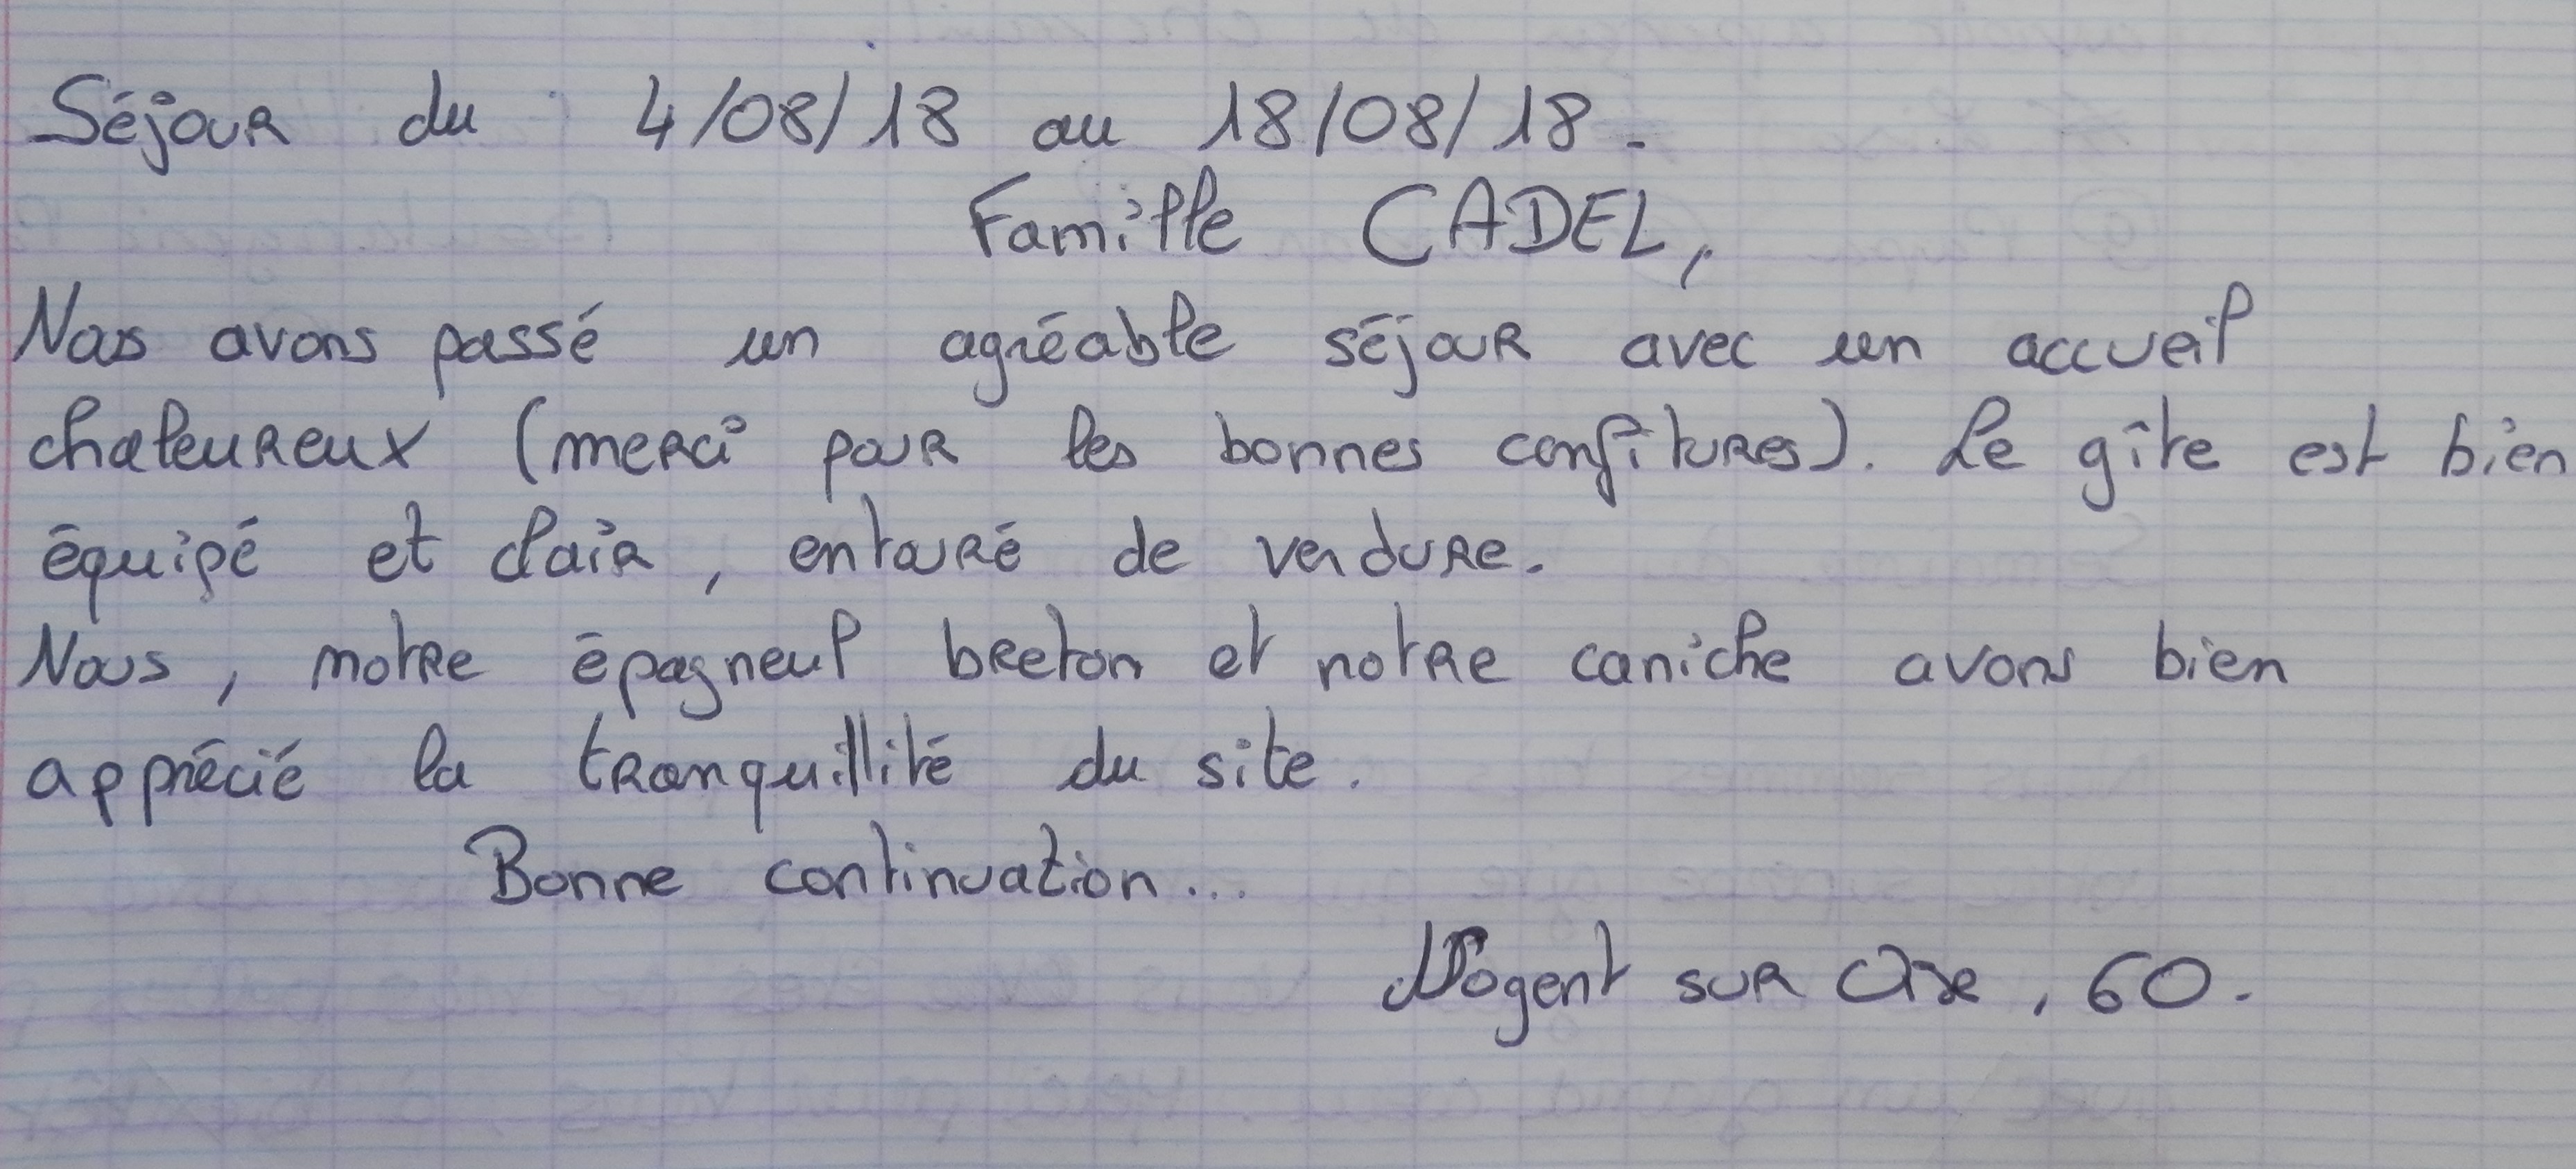 Séjour du 4/08/18 au 18/08/18.
Famille CADEL,
Nous avons passé un agréable séjour avec un accueil
chaleureux (merci pour les bonnes confitures). Le gîte est bien
équipé et clair, entouré de verdure.
Nous, notre épagneul breton et notre caniche avons bien
apprécié la tranquillité du site.
Bonne continuation...
Nogent sur Oise, 60.